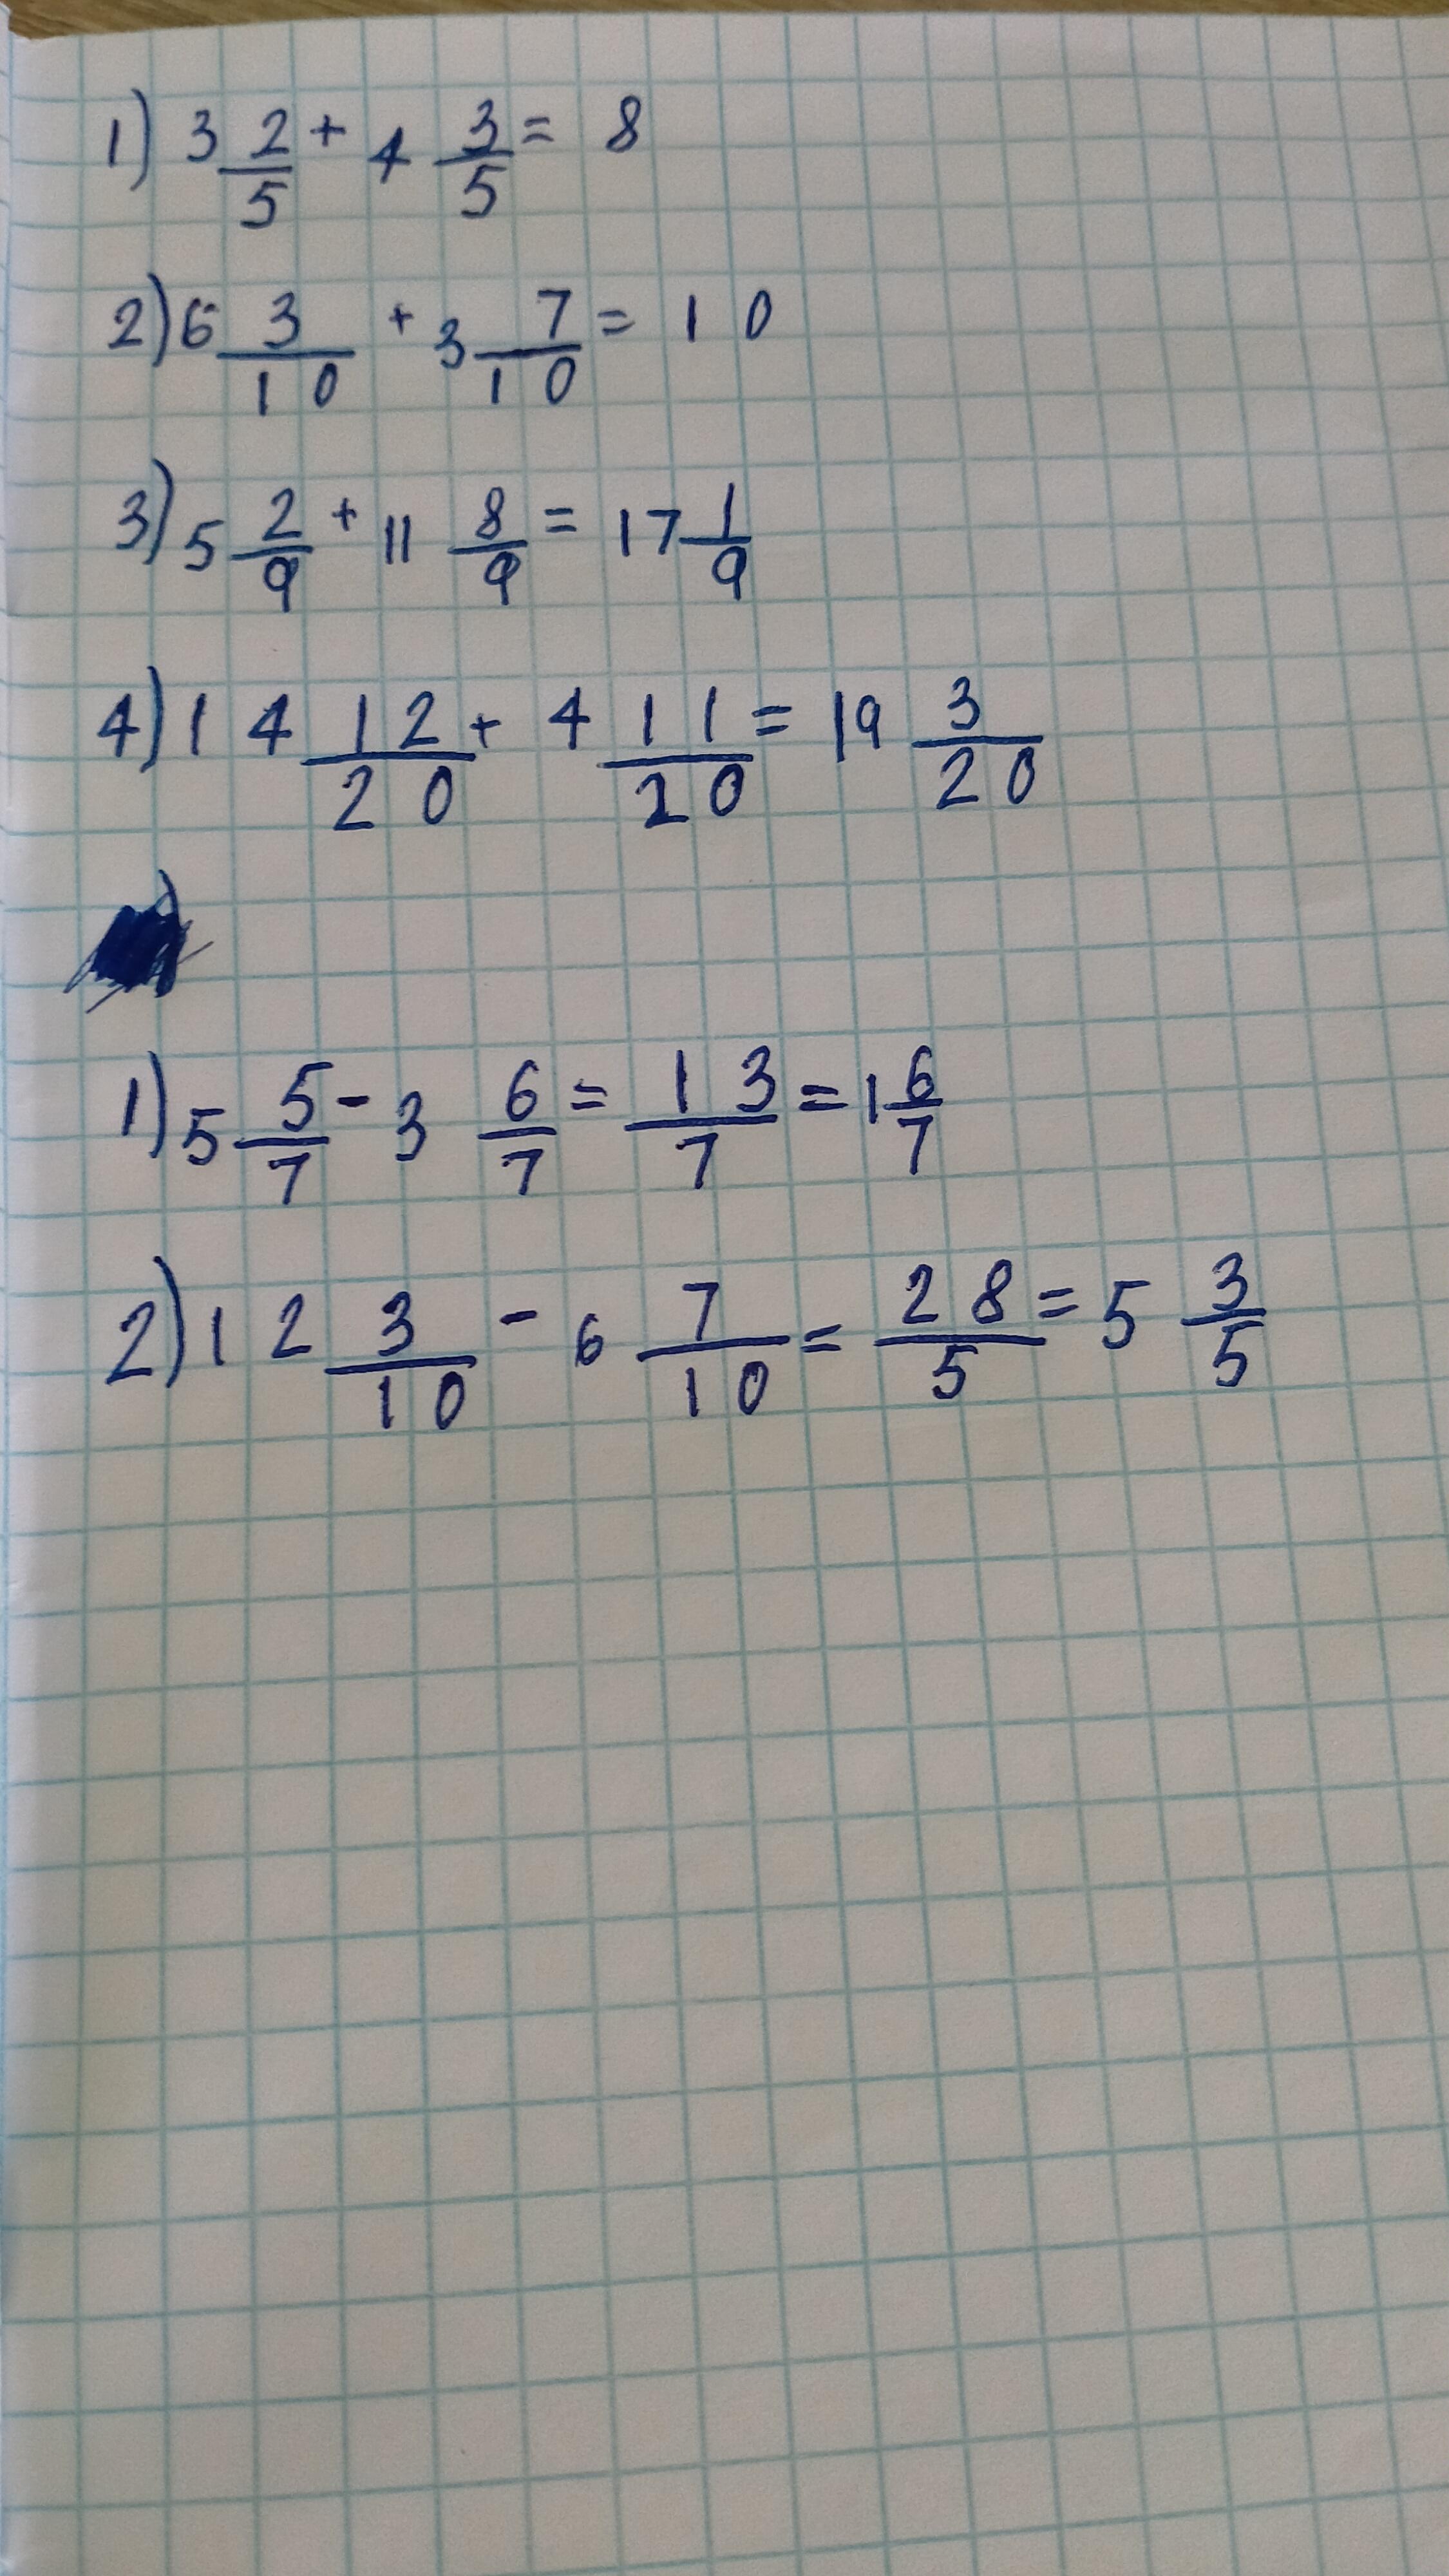 1) 3 2/5 + 4 3/5 = 8
2) 6 3/10 + 3 7/10 = 10
3) 5 2/9 + 11 8/9 = 17 1/9
4) 14 12/20 + 4 11/20 = 19 3/20
1) 5 5/7 - 3 6/7 = 13/7 = 1 6/7
2) 12 3/10 - 6 7/10 = 28/5 = 5 3/5